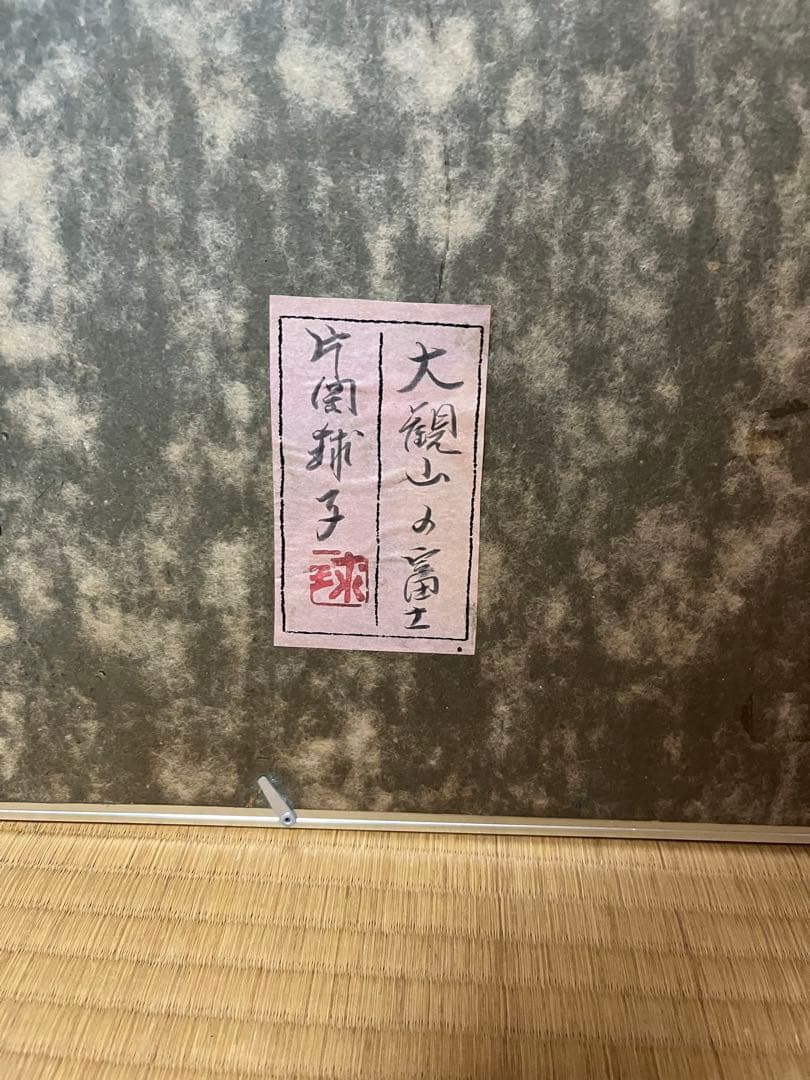 大観山の富士
片岡球子
球